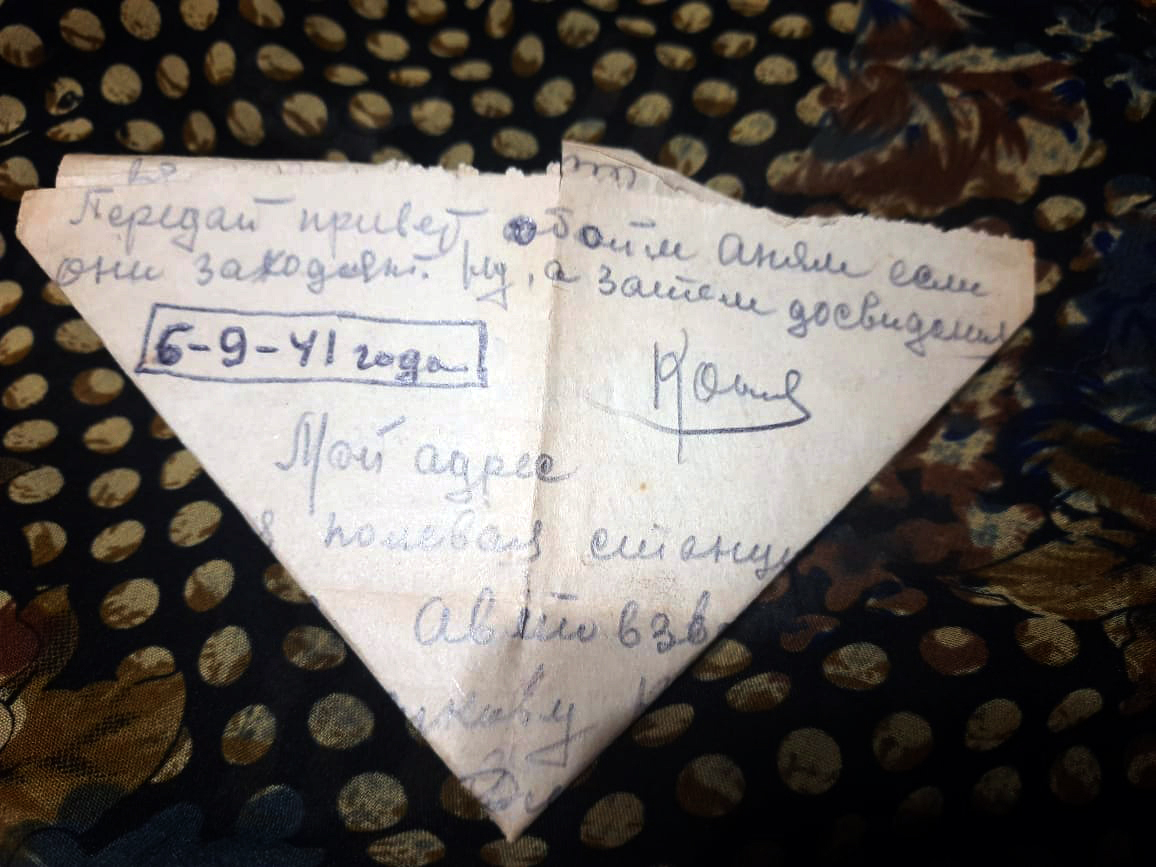 Передай привет обойм Аням если
они заходят. Ну, а затем досвидания
6-9-41 года.
Коля
Мой адрес
полевая станц
Авто взв